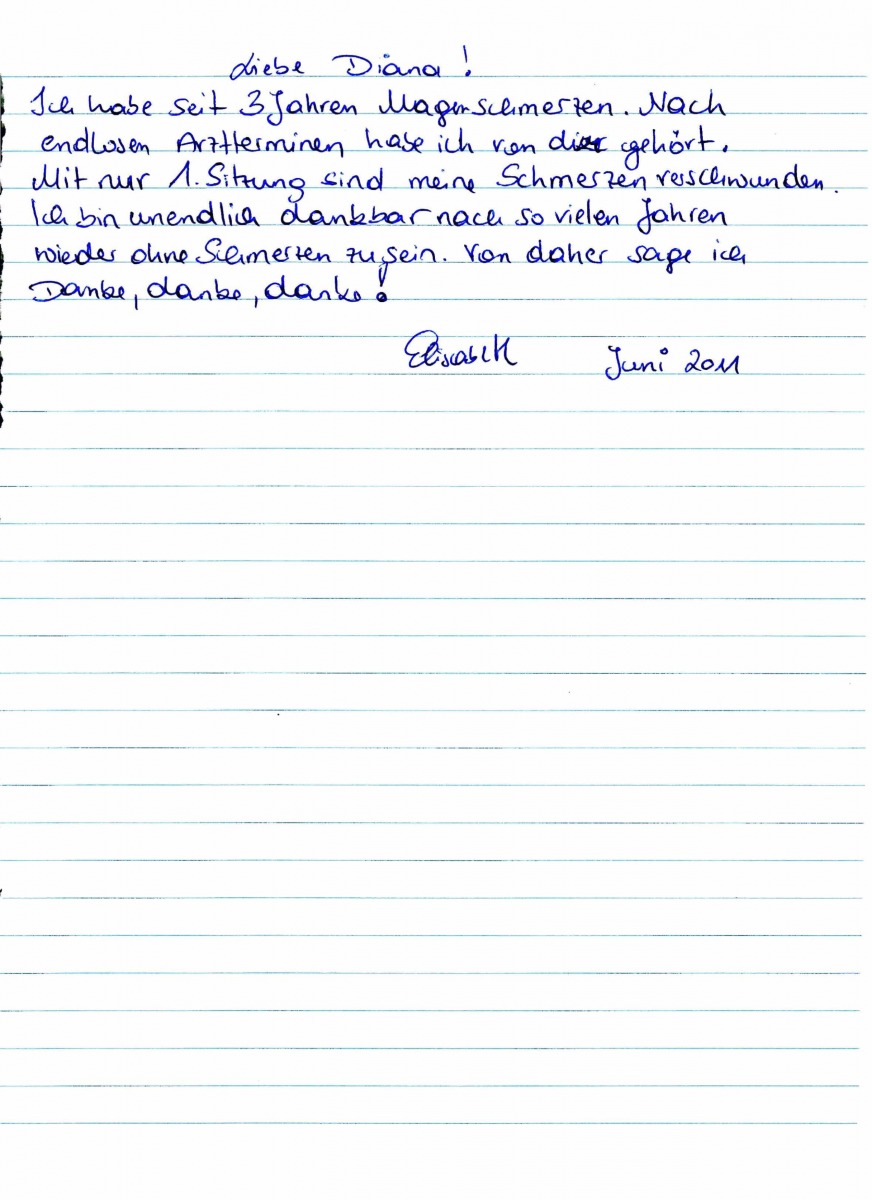 Liebe Diana!
Ich habe seit 3 Jahren Magenschmerzen. Nach
endlosen Arztterminen habe ich von dir gehört.
Mit nur 1. Sitzung sind meine Schmerzen verschwunden.
Ich bin unendlich dankbar nach so vielen Jahren
wieder ohne Schmerzen zu sein. Von daher sage ich
Danke, danke, danke!
Elisabeth Juni 2011